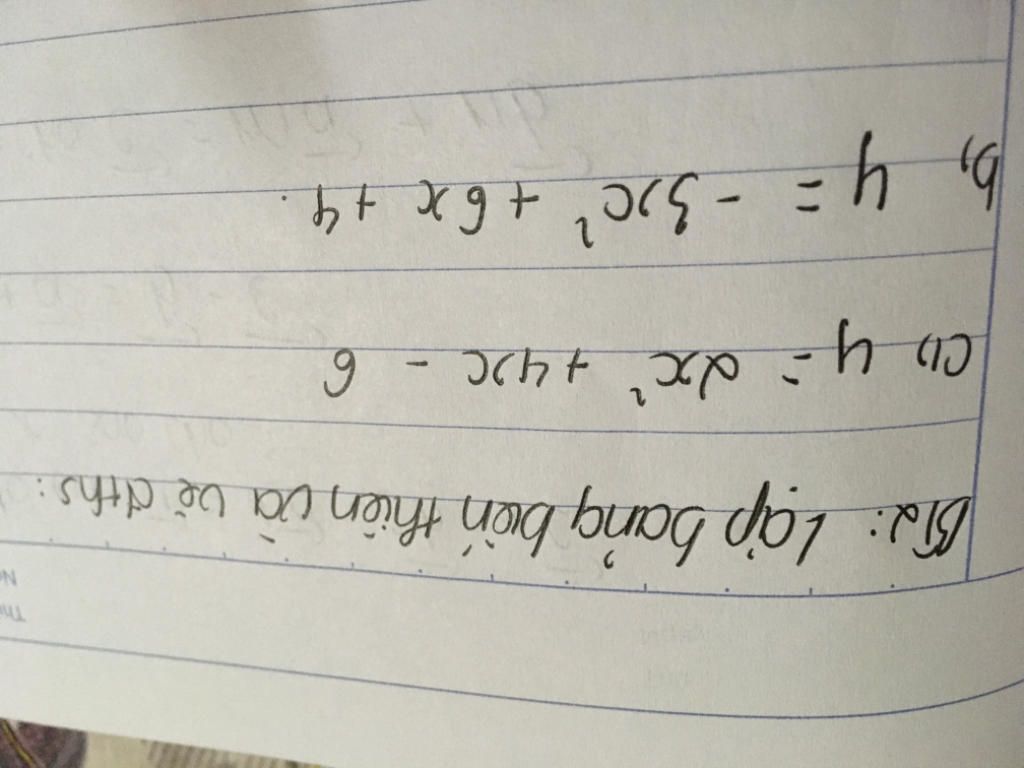 B12: Lập bảng biến thiên và vẽ đths:
a, y = 2x² + 4x - 6
b, y = -3x² + 6x + 4.